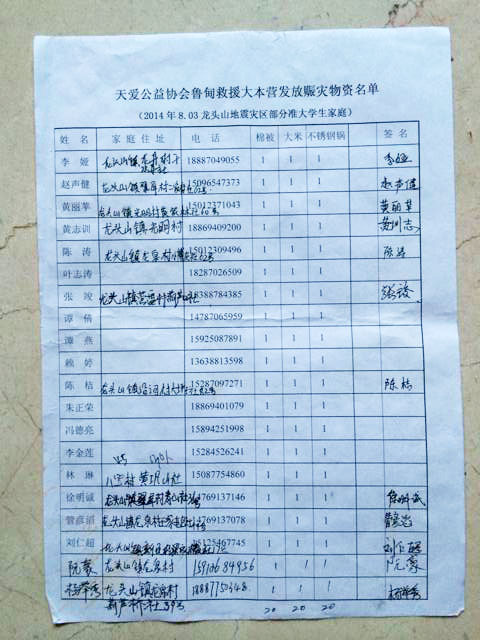 天爱公益协会鲁甸救援大本营发放赈灾物资名单
（2014年8.03龙头山地震灾区部分准大学生家庭）
姓名 家庭住址 电话 棉被 大米 不锈钢锅 签名
李娅 龙头山镇 18887049055 1 1 1 李娅
赵声健 龙头山镇 15096547373 1 1 1 赵声健
黄丽苹 龙头山镇光明村 15012371043 1 1 1 黄丽苹
黄志训 龙头山镇光明村 18869409200 1 1 1 黄训志
陈涛 龙头山镇龙泉村 15012309496 1 1 1 陈涛
叶志涛 18287026509 1 1 1
张竣 龙头山镇 388784385 1 1 1 张竣
谭倩 14787065959 1 1 1
谭燕 15925087891 1 1 1
赖婷 13638813598 1 1 1
陈桔 龙头山镇沿河村 15287097271 1 1 1 陈桔
朱正荣 18869401079 1 1 1
冯德亮 15894251998 1 1 1
李金莲 15284526241 1 1 1
林琳 八宝村 15087754860 1 1 1
徐明诚 龙头山镇 769137146 1 1 1 徐明诚
管彦滔 龙头山镇龙泉村 769137078 1 1 1
刘仁超 龙头山镇 125467745 1 1 1 刘仁超
阮蒙 龙头山镇龙泉村 1 1 1 阮蒙
龙头山镇龙泉村 1 1 1
葫芦桥社39号 20 20 20